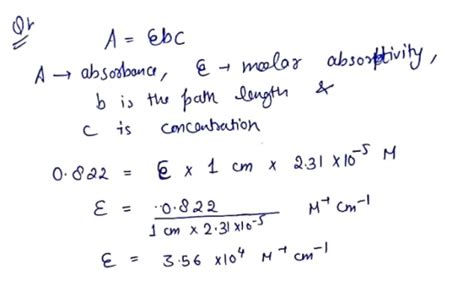 Qr
A = εbc
A → absorbance, ε → molar absorptivity,
b is the path length &
c is concentration
0.822 = ε x 1 cm x 2.31 x10⁻⁵ M
ε = 0.822 / 1 cm x 2.31 x10⁻⁵ M⁻¹ cm⁻¹
ε = 3.56 x10⁴ M⁻¹ cm⁻¹